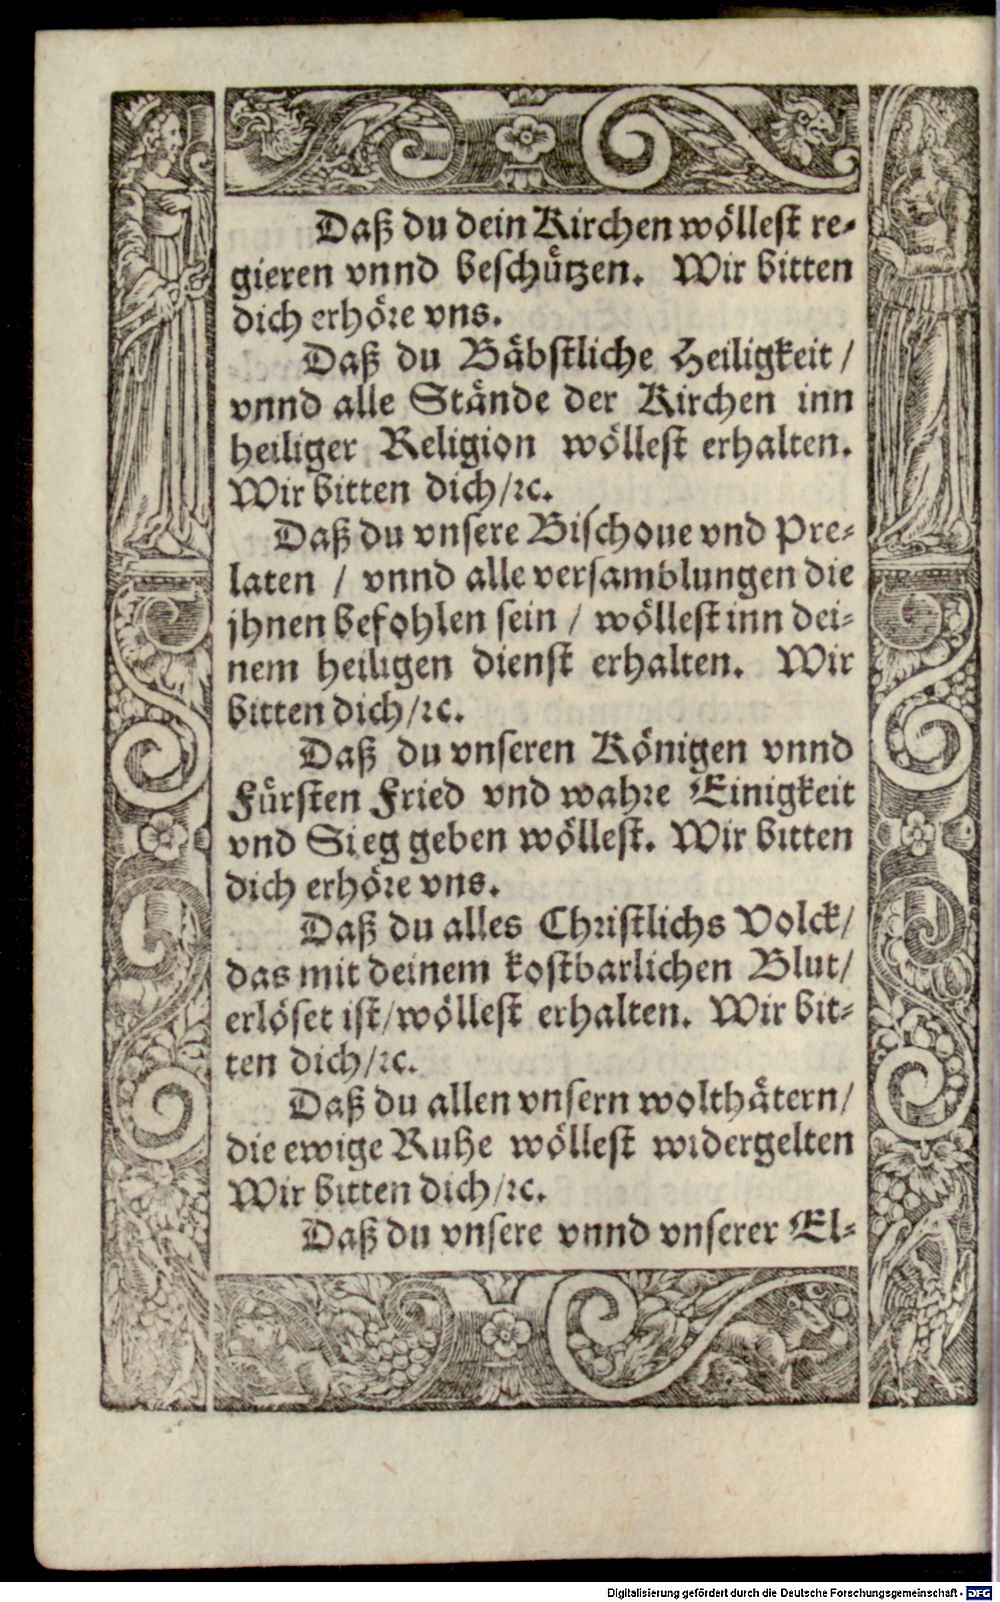 Daß du dein Kirchen wöllest re-
gieren vnnd beschützen. Wir bitten
dich erhöre vns.
Daß du Bäbstliche Heiligkeit /
vnnd alle Stände der Kirchen inn
heiliger Religion wöllest erhalten.
Wir bitten dich/ꝛc.
Daß du vnsere Bischoue vnd Pre-
laten / vnnd alle versamblungen die
jhnen befohlen sein / wöllest inn dei-
nem heiligen dienst erhalten. Wir
bitten dich/ꝛc.
Daß du vnseren Königen vnnd
Fürsten Fried vnd wahre Einigkeit
vnd Sieg geben wöllest. Wir bitten
dich erhöre vns.
Daß du alles Christlichs Volck/
das mit deinem kostbarlichen Blut/
erlöset ist/wöllest erhalten. Wir bit-
ten dich/ꝛc.
Daß du allen vnsern wolthätern/
die ewige Ruhe wöllest widergelten
Wir bitten dich/ꝛc.
Daß du vnsere vnnd vnserer El-
Digitalisierung gefördert durch die Deutsche Forschungsgemeinschaft - DFG